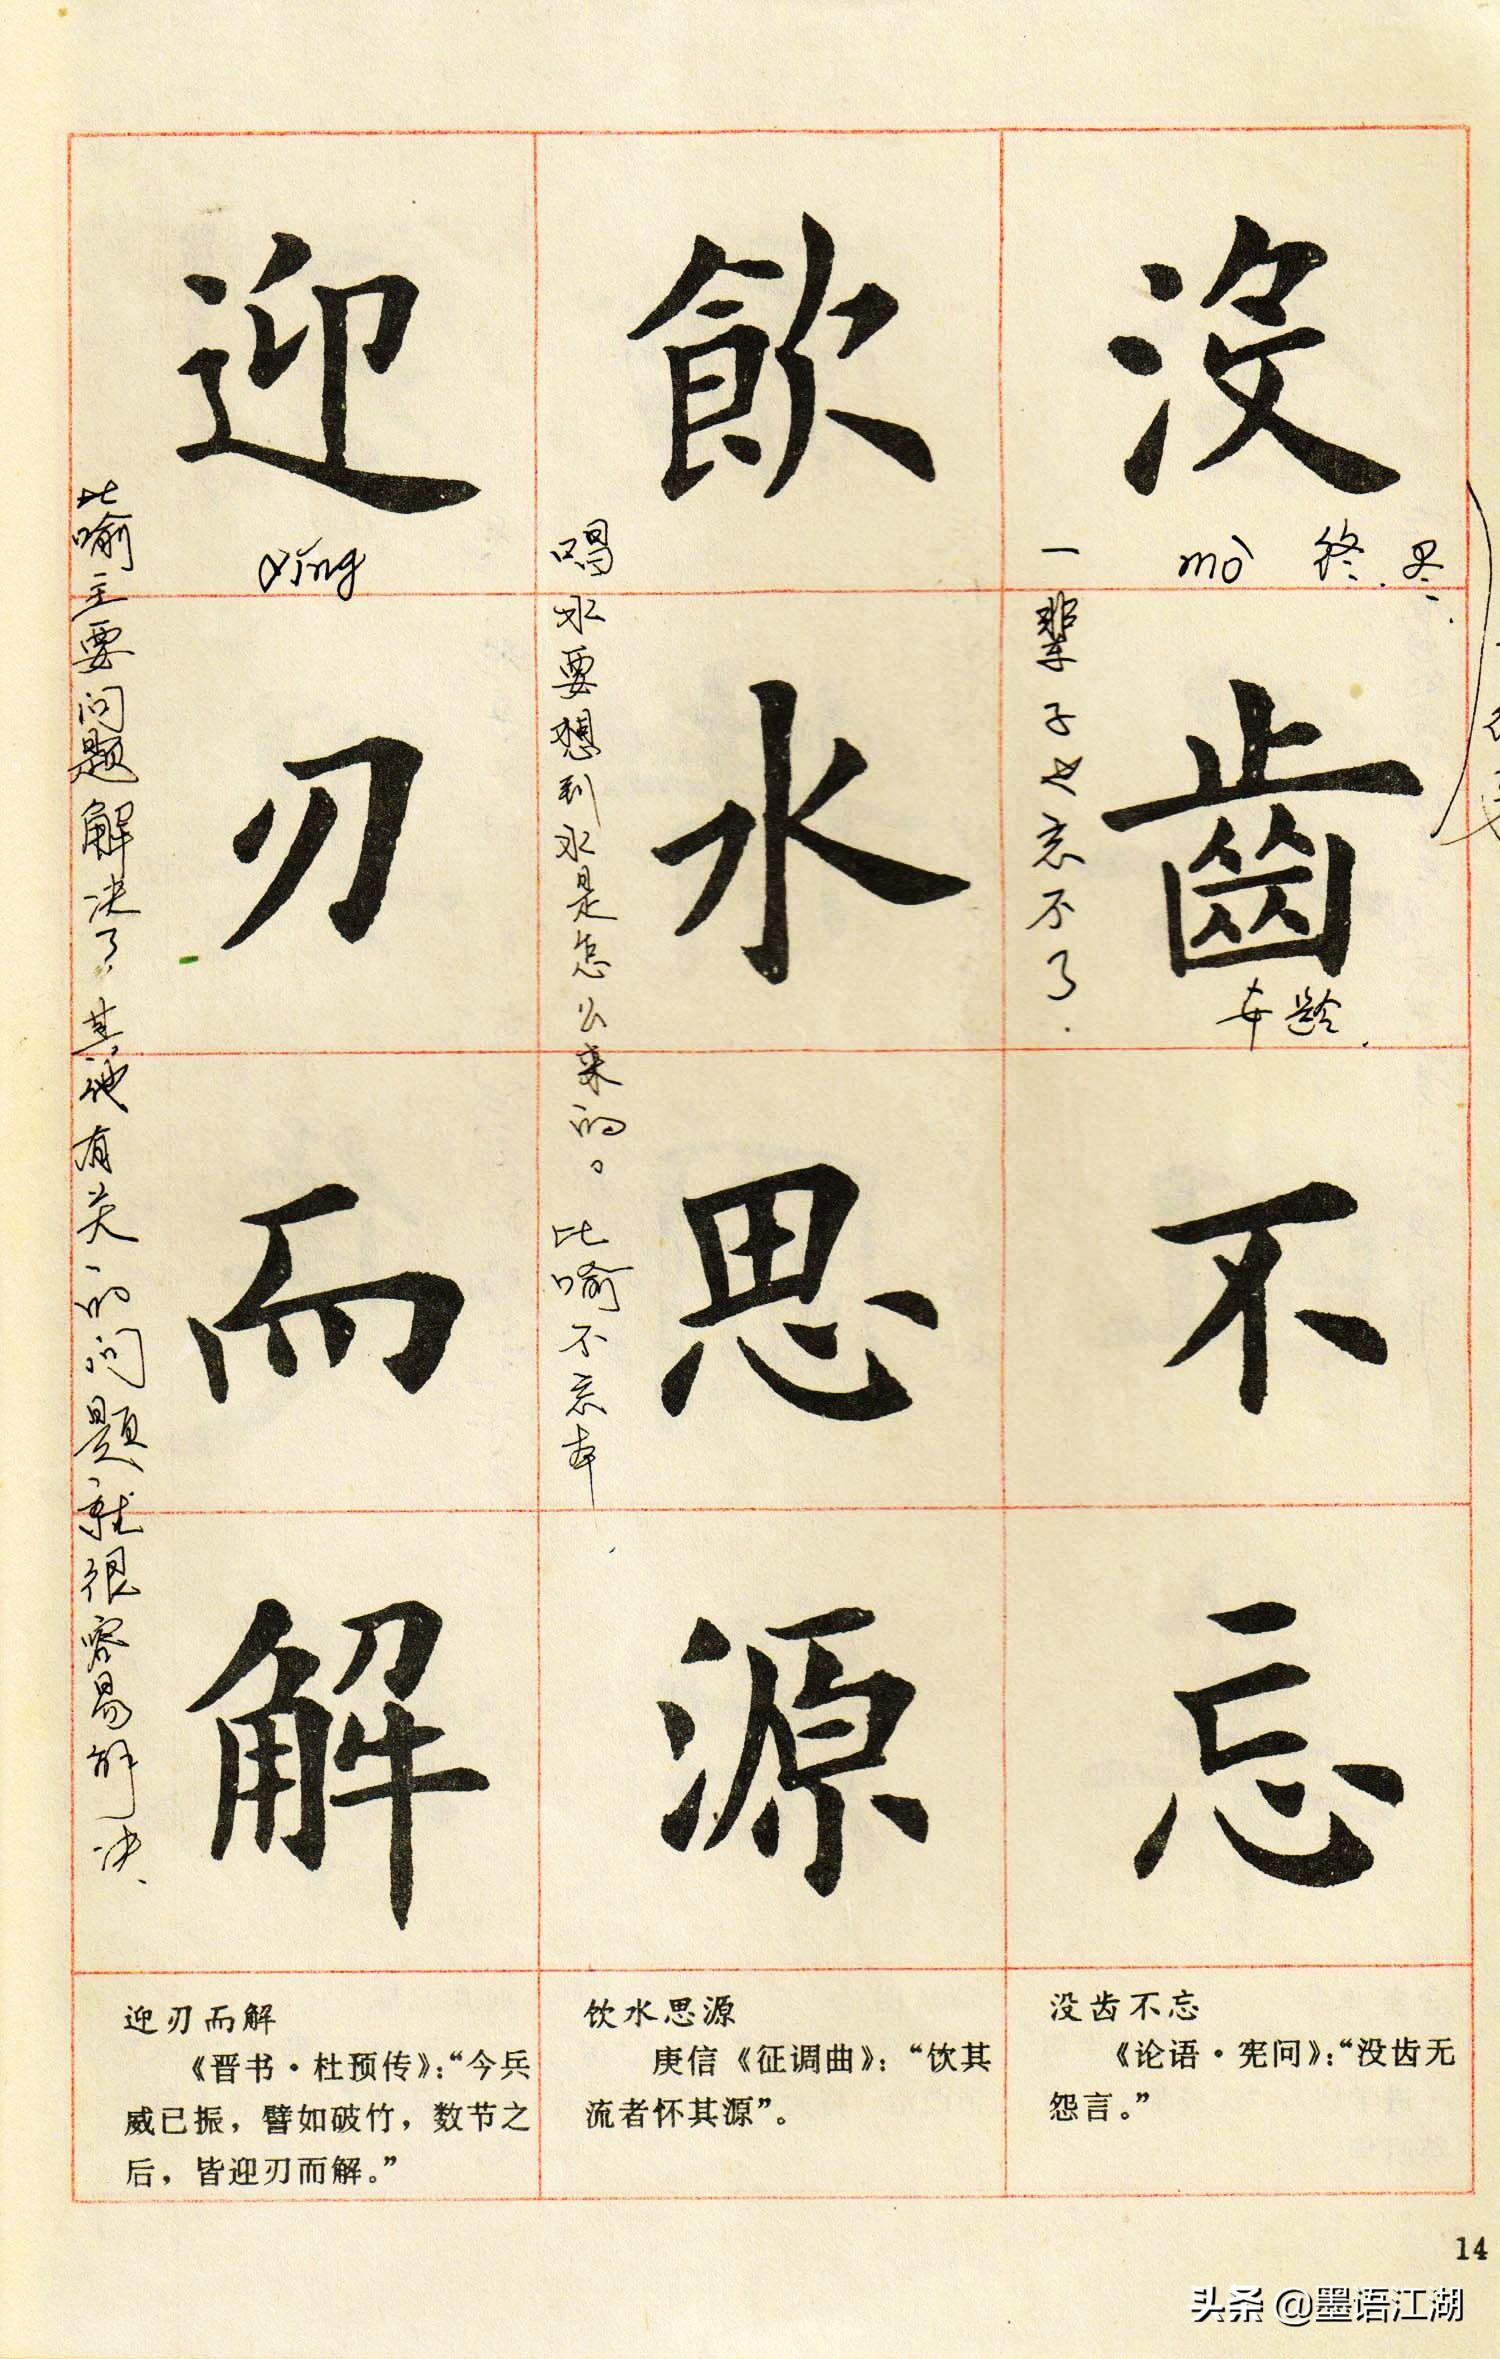 没齒不忘
mò 终.尽.
年龄.
一辈子也忘不了.
飲水思源
喝水要想到水是怎么来的。比喻不忘本
迎刃而解
yíng
比喻主要问题解决了.其他有关的问题就很容易解决.
没齿不忘
《论语·宪问》：“没齿无
怨言。”
饮水思源
庾信《征调曲》：“饮其
流者怀其源”。
迎刃而解
《晋书·杜预传》：“今兵
威已振，譬如破竹，数节之
后，皆迎刃而解。”
14
头条 @墨语江湖